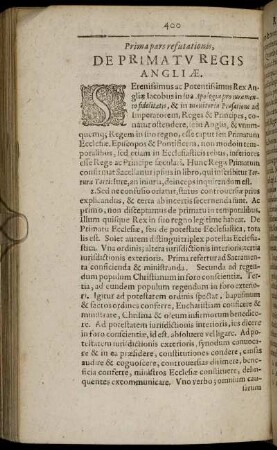 400
Prima pars refutationis,
DE PRIMATV REGIS
ANGLIÆ.
SErenissimus ac Potentissimus Rex An-
gliæ Iacobus in sua Apologia pro iuramen-
to fidelitatis, & in monitoria Præfatione ad
Imperatorem, Reges & Principes, co-
natur ostendere, se in Anglia, & vnum-
quemq; Regem in suo regno, esse caput seu Primatum
Ecclesiæ, Episcopos & Pontificem, non modò tem-
poralibus, sed etiam in Ecclesiasticis rebus, inferiores
esse Rege ac Principe seculari. Hunc Regis Primatum
construat Sacellanus ipsius in libro, qui inscribitur Tor-
tura Torti: hîc, an iniuria, deinceps inquirendum est.
2. Sed ne in confuso oratio, status controuersiæ priùs
explicandus, & certa ab incertis secernenda sunt. Ac
primò, non disceptamus de primatu in temporalibus.
Illum quisque Rex in suo regno legitimè habeat. De
Primatu Ecclesiæ, seu de potestate Ecclesiastica, tota
lis est. Solet autem distingui triplex potestas Ecclesia-
stica. Vna ordinis; altera iurisdictionis interioris; tertia
iurisdictionis exterioris. Prima refertur ad Sacramenta
conficienda & ministranda. Secunda ad regen-
dum populum Christianum in foro conscientiæ. Ter-
tia, ad eundem populum regendum in foro exterio-
ri. Igitur ad potestatem ordinis spectat, baptismum
& sactos ordines conferre, Eucharistiam conficere &
ministrare, Chrisma & oleum infirmorum benedice-
re. Ad potestatem iurisdictionis interioris, ius dicere
in foro conscientiæ, id est, absoluere vel ligare. Ad po-
testatem iurisdictionis exterioris, synodum conuoca-
re & in ea præsidere, constitutiones condere, causas
audire & cognoscere, controuersias dirimere, bene-
ficia conferre, ministros Ecclesiæ constituere, delin-
quentes excommunicare. Vno verbo, omnium cau-
sarum